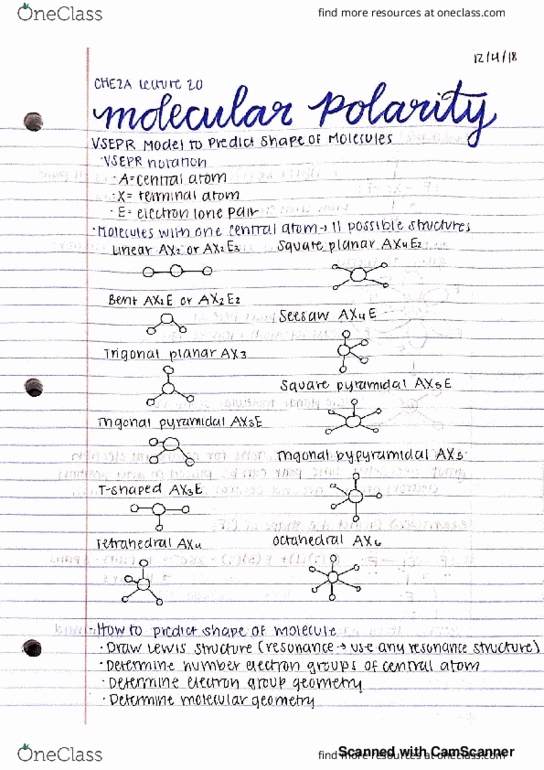 OneClass
find more resources at oneclass.com
12/4/18
CHE2A Lecture 20
molecular polarity
VSEPR Model to Predict Shape of Molecules
·VSEPR notation
·A=central atom
·X= terminal atom
·E= electron lone pair
·Molecules with one central atom→11 possible structures
Linear AX2 or AX2E3
Square planar AX4E2
Bent AX2E or AX2E2
Seesaw AX4E
Trigonal planar AX3
Square pyramidal AX5E
Trigonal pyramidal AX3E
Trigonal pypyramidal AX5
T-shaped AX3E
Tetrahedral AX4
Octahedral AX6
·How to predict shape of molecule
·Draw Lewis structure (resonance→use any resonance structure)
·Determine number electron groups of central atom
·Determine electron group geometry
·Determine molecular geometry
OneClass
find more resources at oneclass.com
Scanned with CamScanner